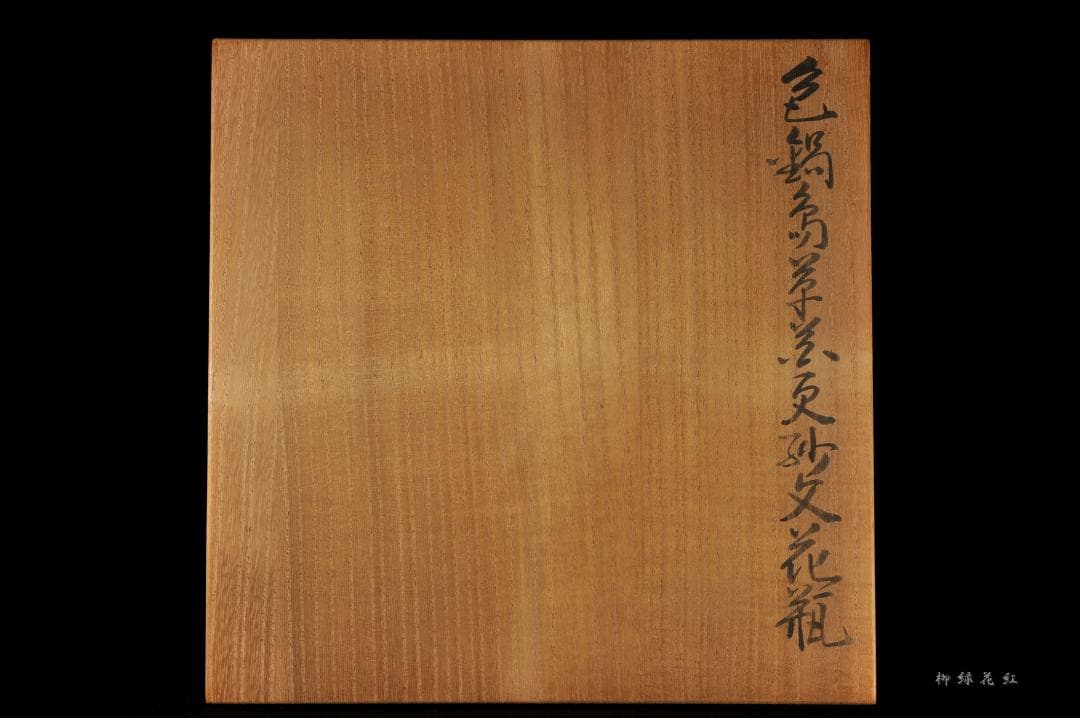 色鍋島草花更紗文花瓶
柳緑花紅